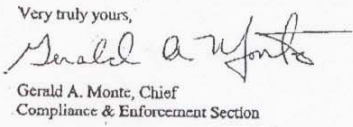 Very truly yours,
Gerald A Monte
Gerald A. Monte, Chief
Compliance & Enforcement Section